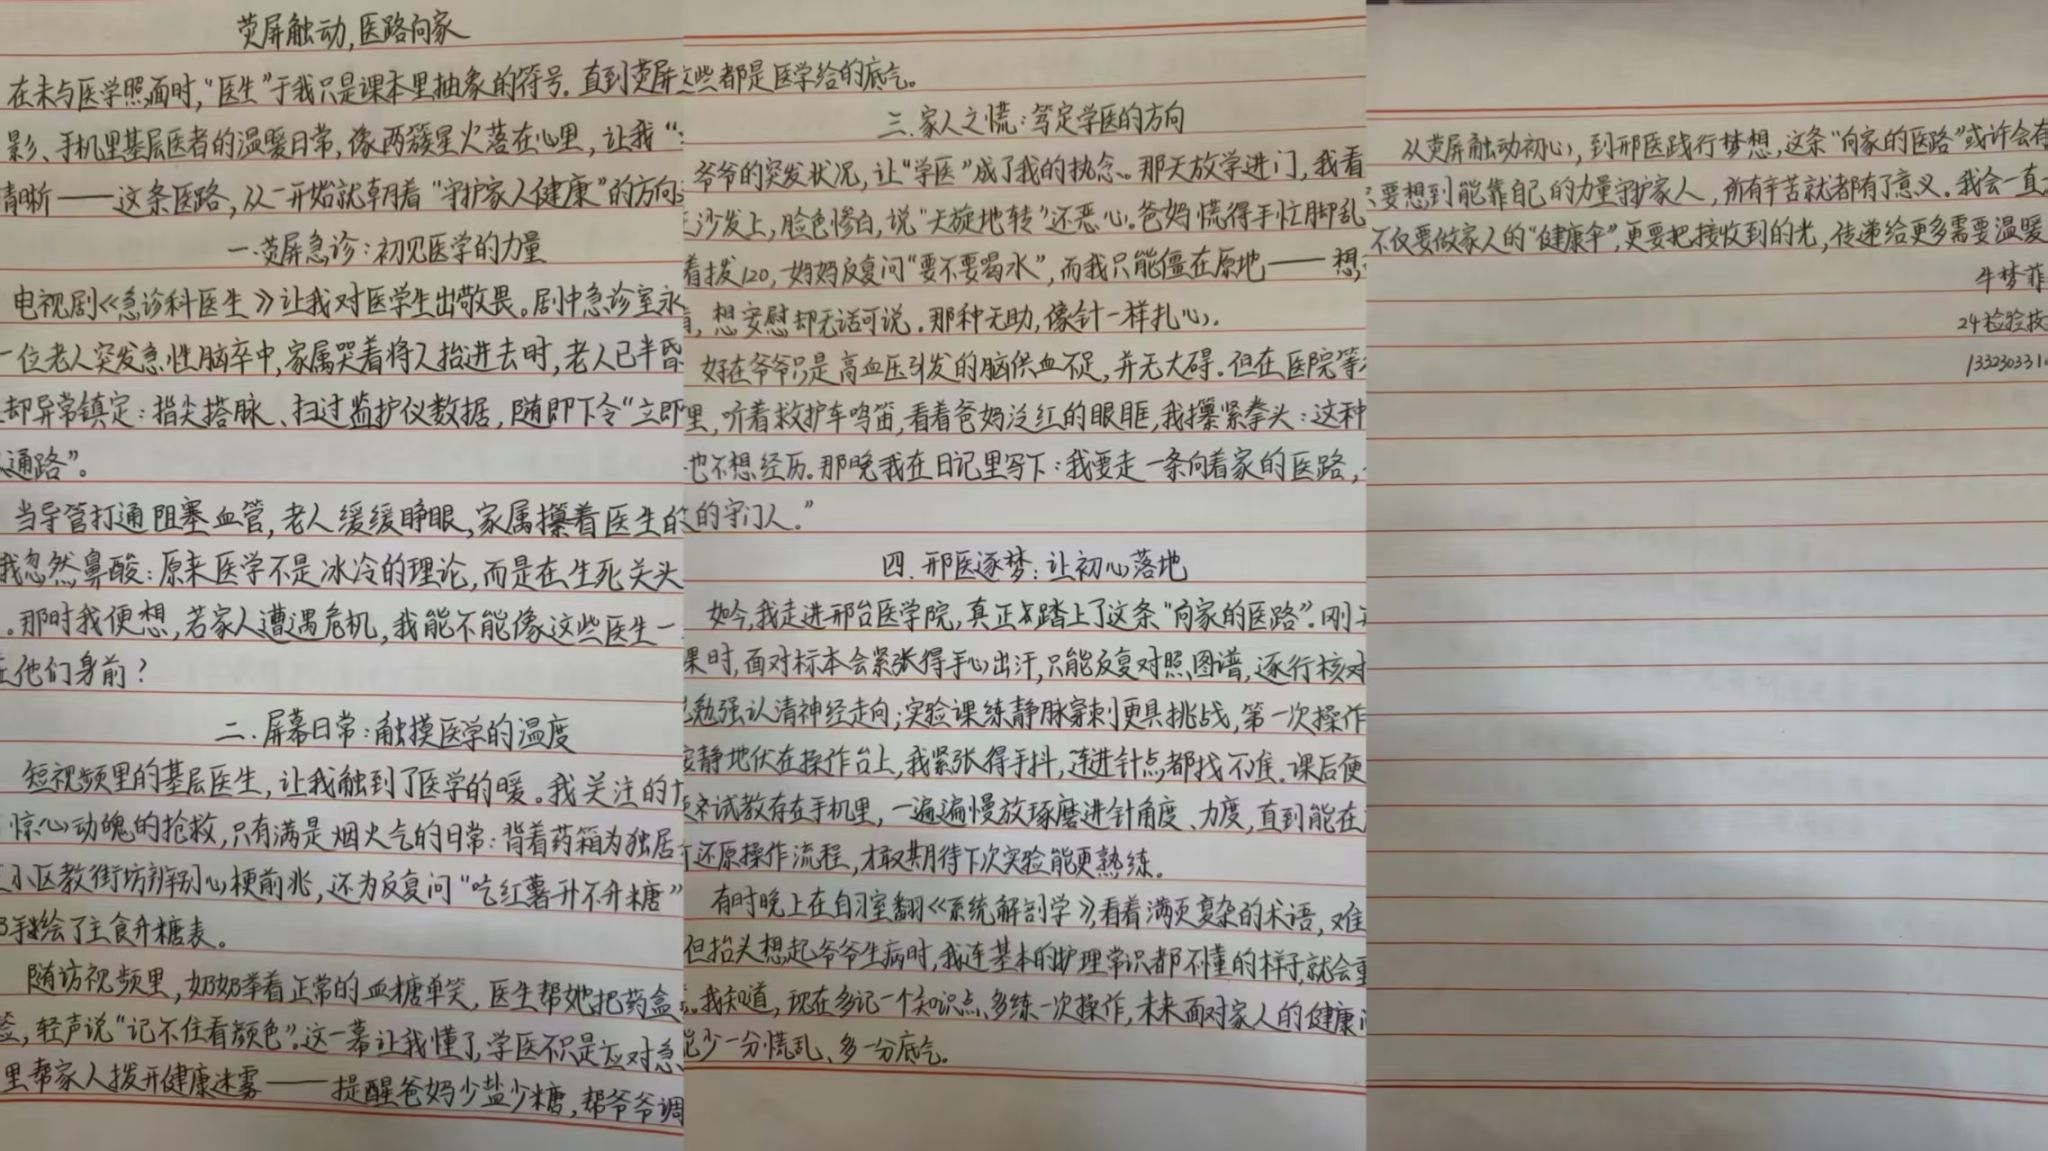 荧屏触动,医路向家
在未与医学照面时,“医生”于我只是课本里抽象的符号.直到荧屏
影、手机里基层医者的温暖日常,像两簇星火落在心里,让我“
清晰——这条医路,从一开始就朝着“守护家人健康”的方向
一.荧屏急诊:初见医学的力量
电视剧《急诊科医生》让我对医学生出敬畏。剧中急诊室永
一位老人突发急性脑卒中,家属哭着将人抬进去时,老人已半昏
却异常镇定:指尖搭脉、扫过监护仪数据,随即下令“立即
通路”。
当导管打通阻塞血管,老人缓缓睁眼,家属攥着医生的
我忽然鼻酸:原来医学不是冰冷的理论,而是在生死关头
。那时我便想,若家人遭遇危机,我能不能像这些医生一
在他们身前?
二.屏幕日常:触摸医学的温度
短视频里的基层医生,让我触到了医学的暖。我关注的
惊心动魄的抢救,只有满是烟火气的日常:背着药箱为独居
小区教街坊辨别心梗前兆,还为反复问“吃红薯升不升糖”
手绘了主食升糖表。
随访视频里,奶奶举着正常的血糖单笑,医生帮她把药盒
签,轻声说“记不住看颜色”.这一幕让我懂了,学医不只是应对急
里帮家人拨开健康迷雾——提醒爸妈少盐少糖,帮爷爷调
这些都是医学给的底气。
三.家人之慌:笃定学医的方向
爷爷的突发状况,让“学医”成了我的执念。那天放学进门,我看
沙发上,脸色惨白,说“天旋地转”还恶心.爸妈慌得手忙脚乱
着拨120,妈妈反复问“要不要喝水”,而我只能僵在原地——想
,想安慰却无话可说.那种无助,像针一样扎心.
好在爷爷只是高血压引发的脑供血不足,并无大碍.但在医院等
里,听着救护车鸣笛,看着爸妈泛红的眼眶,我攥紧拳头:这种
也不想经历.那晚我在日记里写下:我要走一条向着家的医路,
的守门人.”
四.邢医逐梦:让初心落地
如今,我走进邢台医学院,真正踏上了这条“向家的医路”.刚
课时,面对标本会紧张得手心出汗,只能反复对照图谱,逐行核对
勉强认清神经走向;实验课练静脉穿刺更具挑战,第一次操作
安静地伏在操作台上,我紧张得手抖,连进针点都找不准.课后便
试教存在手机里,一遍遍慢放琢磨进针角度、力度,直到能在
还原操作流程,才敢期待下次实验能更熟练.
有时晚上在自习室翻《系统解剖学》,看着满页复杂的术语,难
但抬头想起爷爷生病时,我连基本的护理常识都不懂的样子,就会重
.我知道,现在多记一个知识点、多练一次操作,未来面对家人的健康
能少一分慌乱、多一分底气.
从荧屏触动初心,到邢医践行梦想,这条“向家的医路”或许会有
只要想到能靠自己的力量守护家人,所有辛苦就都有了意义.我会一直
不仅要做家人的“健康伞”,更要把接收到的光,传递给更多需要温暖
牛梦菲
24检验技
133230331